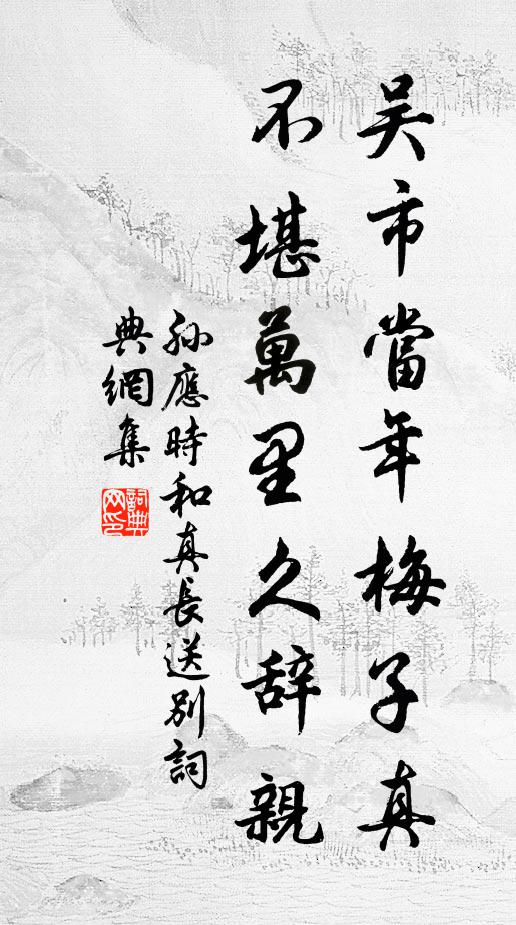 吴市當年梅子真
不堪萬里久辞親
孙應時和真長送别詞
典網集
詞典網印